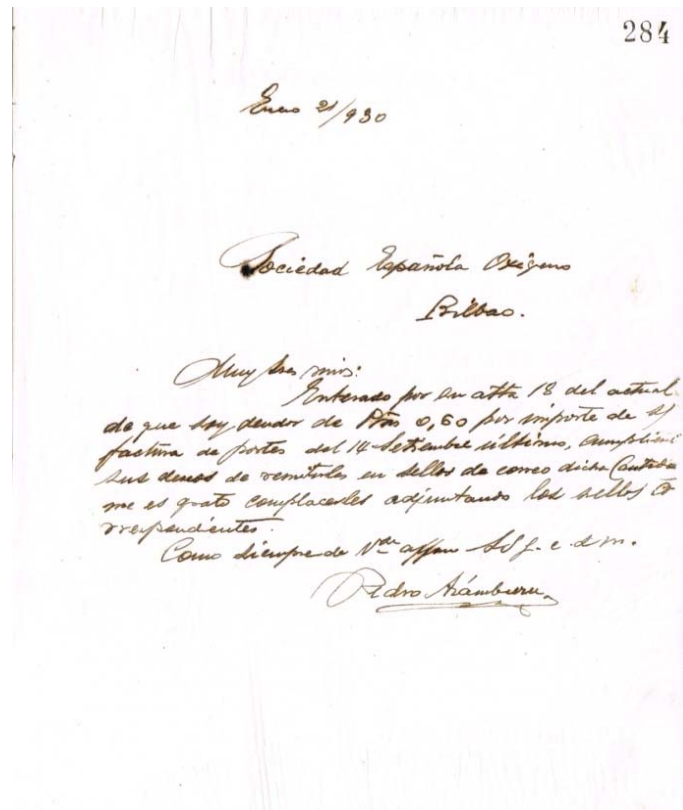 284
Enero 21/930
Sociedad Española Oxígeno
Bilbao.
Muy Sres mios:
Enterado por su atta 18 del actual
de que soy deudor de Ptas 0,60 por importe de s/
factura de portes del 14 Setiembre último,
sus deseos de remitirles en sellos de correo dicha Cantidad
me es grato complacerles adjuntando los sellos co
rrespondientes.
Como siempre de Vdes affmo S S q. e. s. m.
Pedro Arámburu